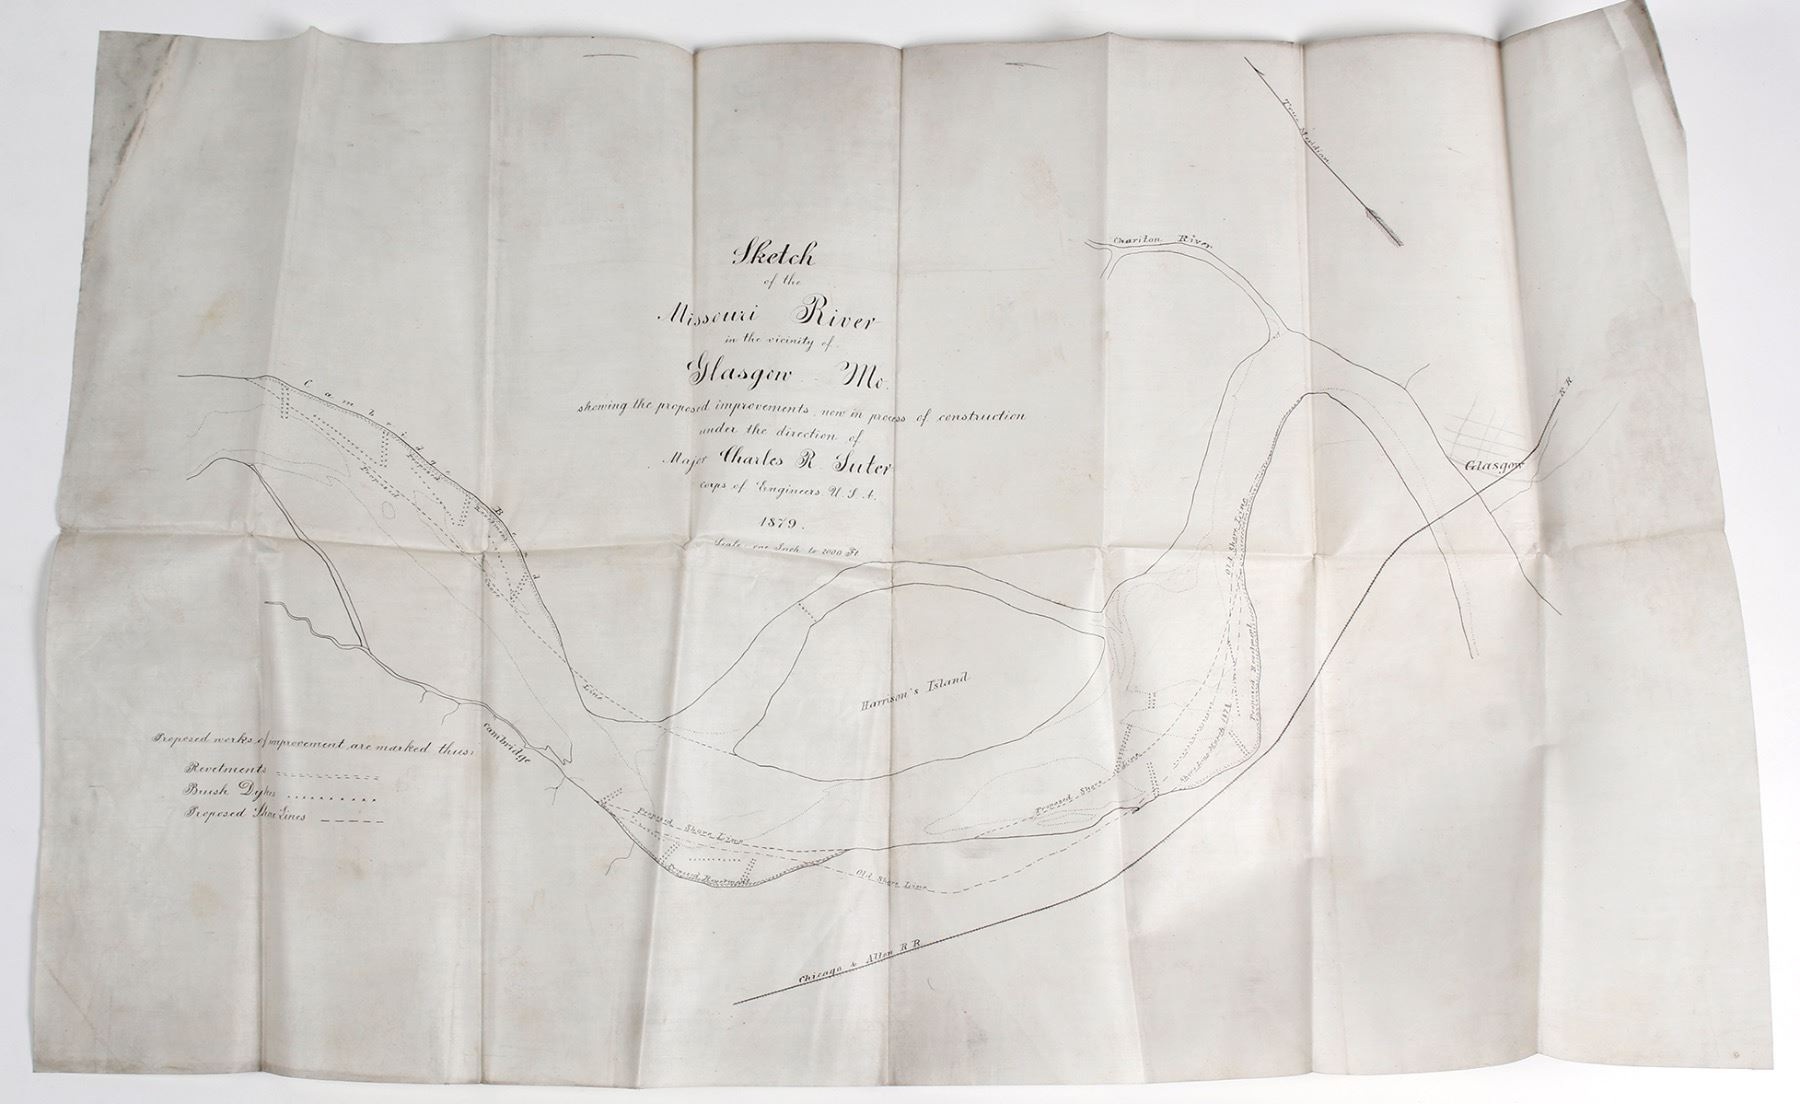 Sketch
of the
Missouri River
in the vicinity of
Glasgow Mo.
showing the proposed improvements, now in process of construction
under the direction of
Major Charles R. Suter
corps of Engineers, U.S.A.
1879.
Scale: one Inch to 2000 Ft
True Meridian
Chariton River
Glasgow
R.R.
Cambridge Bend
Proposed Revetment
Proposed Shore Line
Harrison's Island
Old Shore Line
Proposed Revetment
Shore Line March 1879
Proposed Shore Line
Cambridge
Proposed Shore Line
Proposed Revetment
Old Shore Line
Chicago & Alton R.R.
Proposed works of improvement are marked thus:
Revetments
Brush Dykes
Proposed Shore Lines